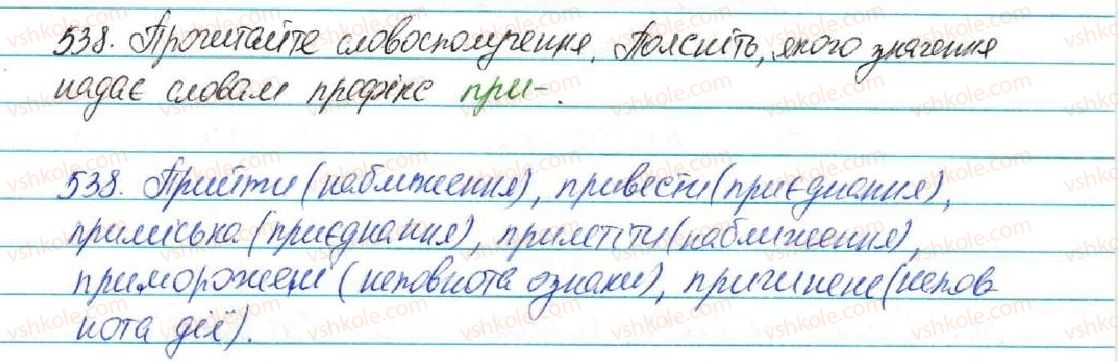 538. Прочитайте словосполучення. Поясніть, якого значення
надає словам префікс при-.
538. Прийти (наближення), привести (приєднання),
приміська (приєднання), прилетіти (наближення),
приморожені (неповнота ознаки), причинене (непов
нота дії).